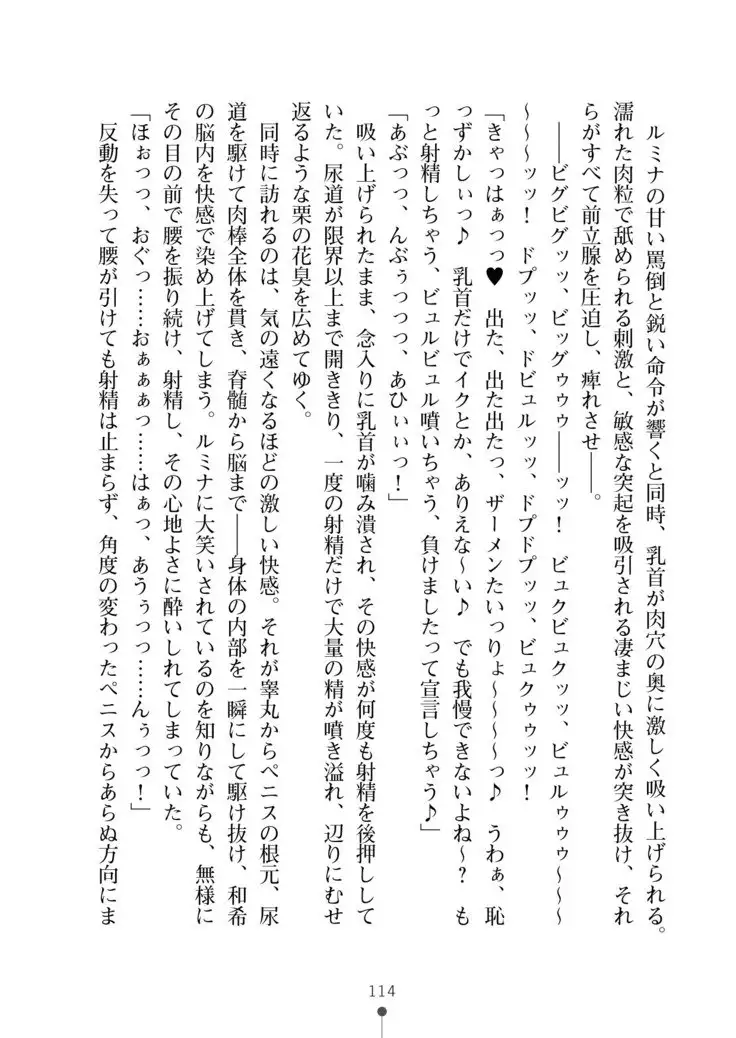 ルミナの甘い罵倒と鋭い命令が響くと同時、乳首が肉穴の奥に激しく吸い上げられる。
濡れた肉粒で舐められる刺激と、敏感な突起を吸引される凄まじい快感が突き抜け、それ
らがすべて前立腺を圧迫し、痺れさせ――。
――ビグビグッッ、ビッグゥゥゥ――ッッ！　ビュクビュクッッ、ビュルゥゥゥ～～～
～～～ッッ！　ドプッッ、ドビュルッッ、ドプドプッッ、ビュクゥゥッッ！
「きゃっはぁっっ♥　出た、出た出たっ、ザーメンたいっりょ～～～～っ♪　うわぁ、恥
っずかしぃっ♪　乳首だけでイクとか、ありえな～い♪　でも我慢できないよね～？　も
っと射精しちゃう、ビュルビュル噴いちゃう、負けましたって宣言しちゃう♪」
「あぶっっ、んぶぅっっっ、あひぃぃっ！」
吸い上げられたまま、念入りに乳首が噛み潰され、その快感が何度も射精を後押しして
いた。尿道が限界以上まで開ききり、一度の射精だけで大量の精が噴き溢れ、辺りにむせ
返るような栗の花臭を広めてゆく。
同時に訪れるのは、気の遠くなるほどの激しい快感。それが睾丸からペニスの根元、尿
道を駆けて肉棒全体を貫き、脊髄から脳まで――身体の内部を一瞬にして駆け抜け、和希
の脳内を快感で染め上げてしまう。ルミナに大笑いされているのを知りながらも、無様に
その目の前で腰を振り続け、射精し、その心地よさに酔いしれてしまっていた。
「ほぉっっ、おぐっ……おぁぁぁっ……はぁっ、あうぅっっ……んぅっっ！」
反動を失って腰が引けても射精は止まらず、角度の変わったペニスからあらぬ方向にま
114